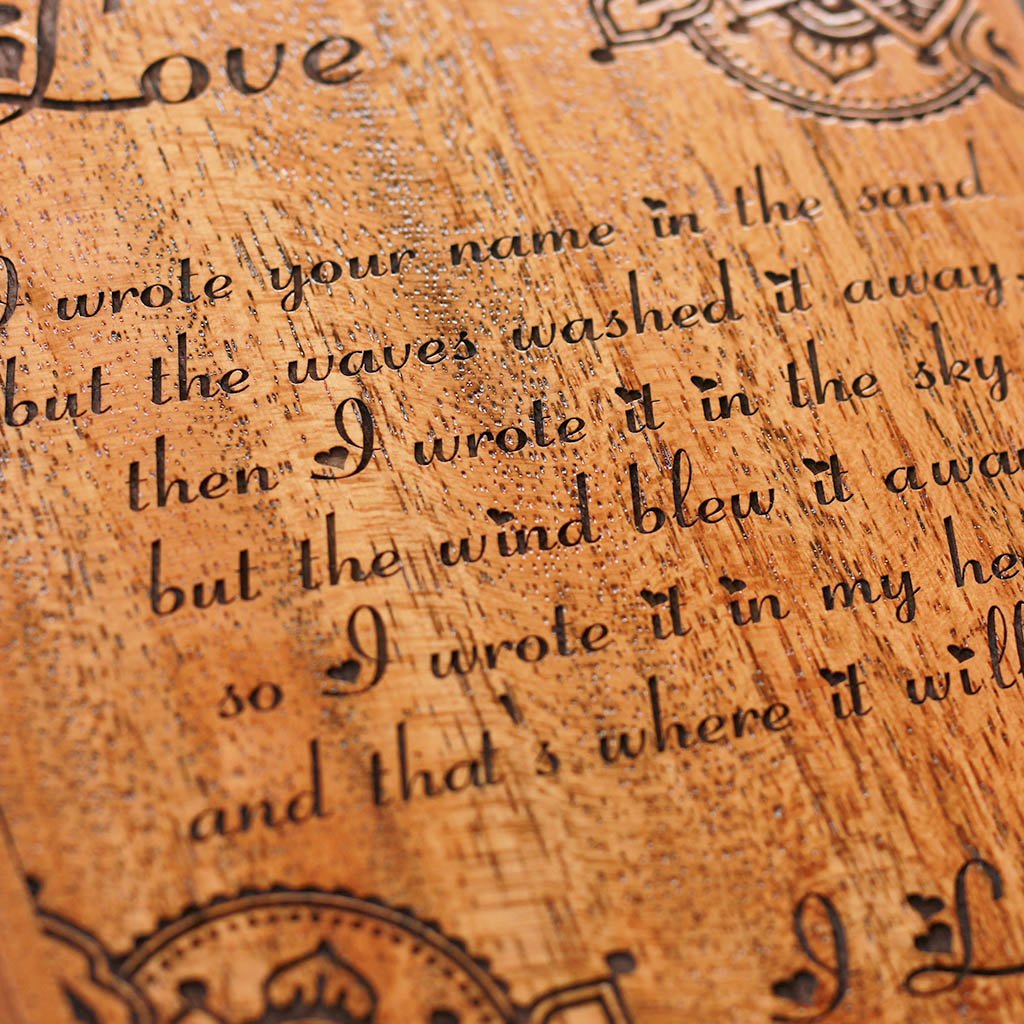 Love
I wrote your name in the sand
but the waves washed it away.
then I wrote it in the sky
but the wind blew it away
so I wrote it in my he
and that's where it will
I L